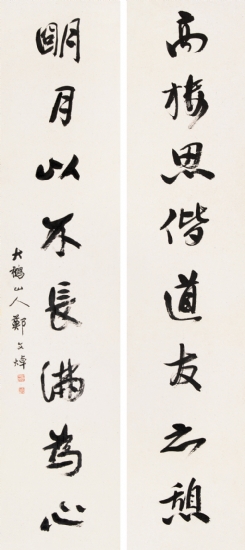 高楼思偕道友而憩
明月以不長滿為心
大鶴山人鄭文焯